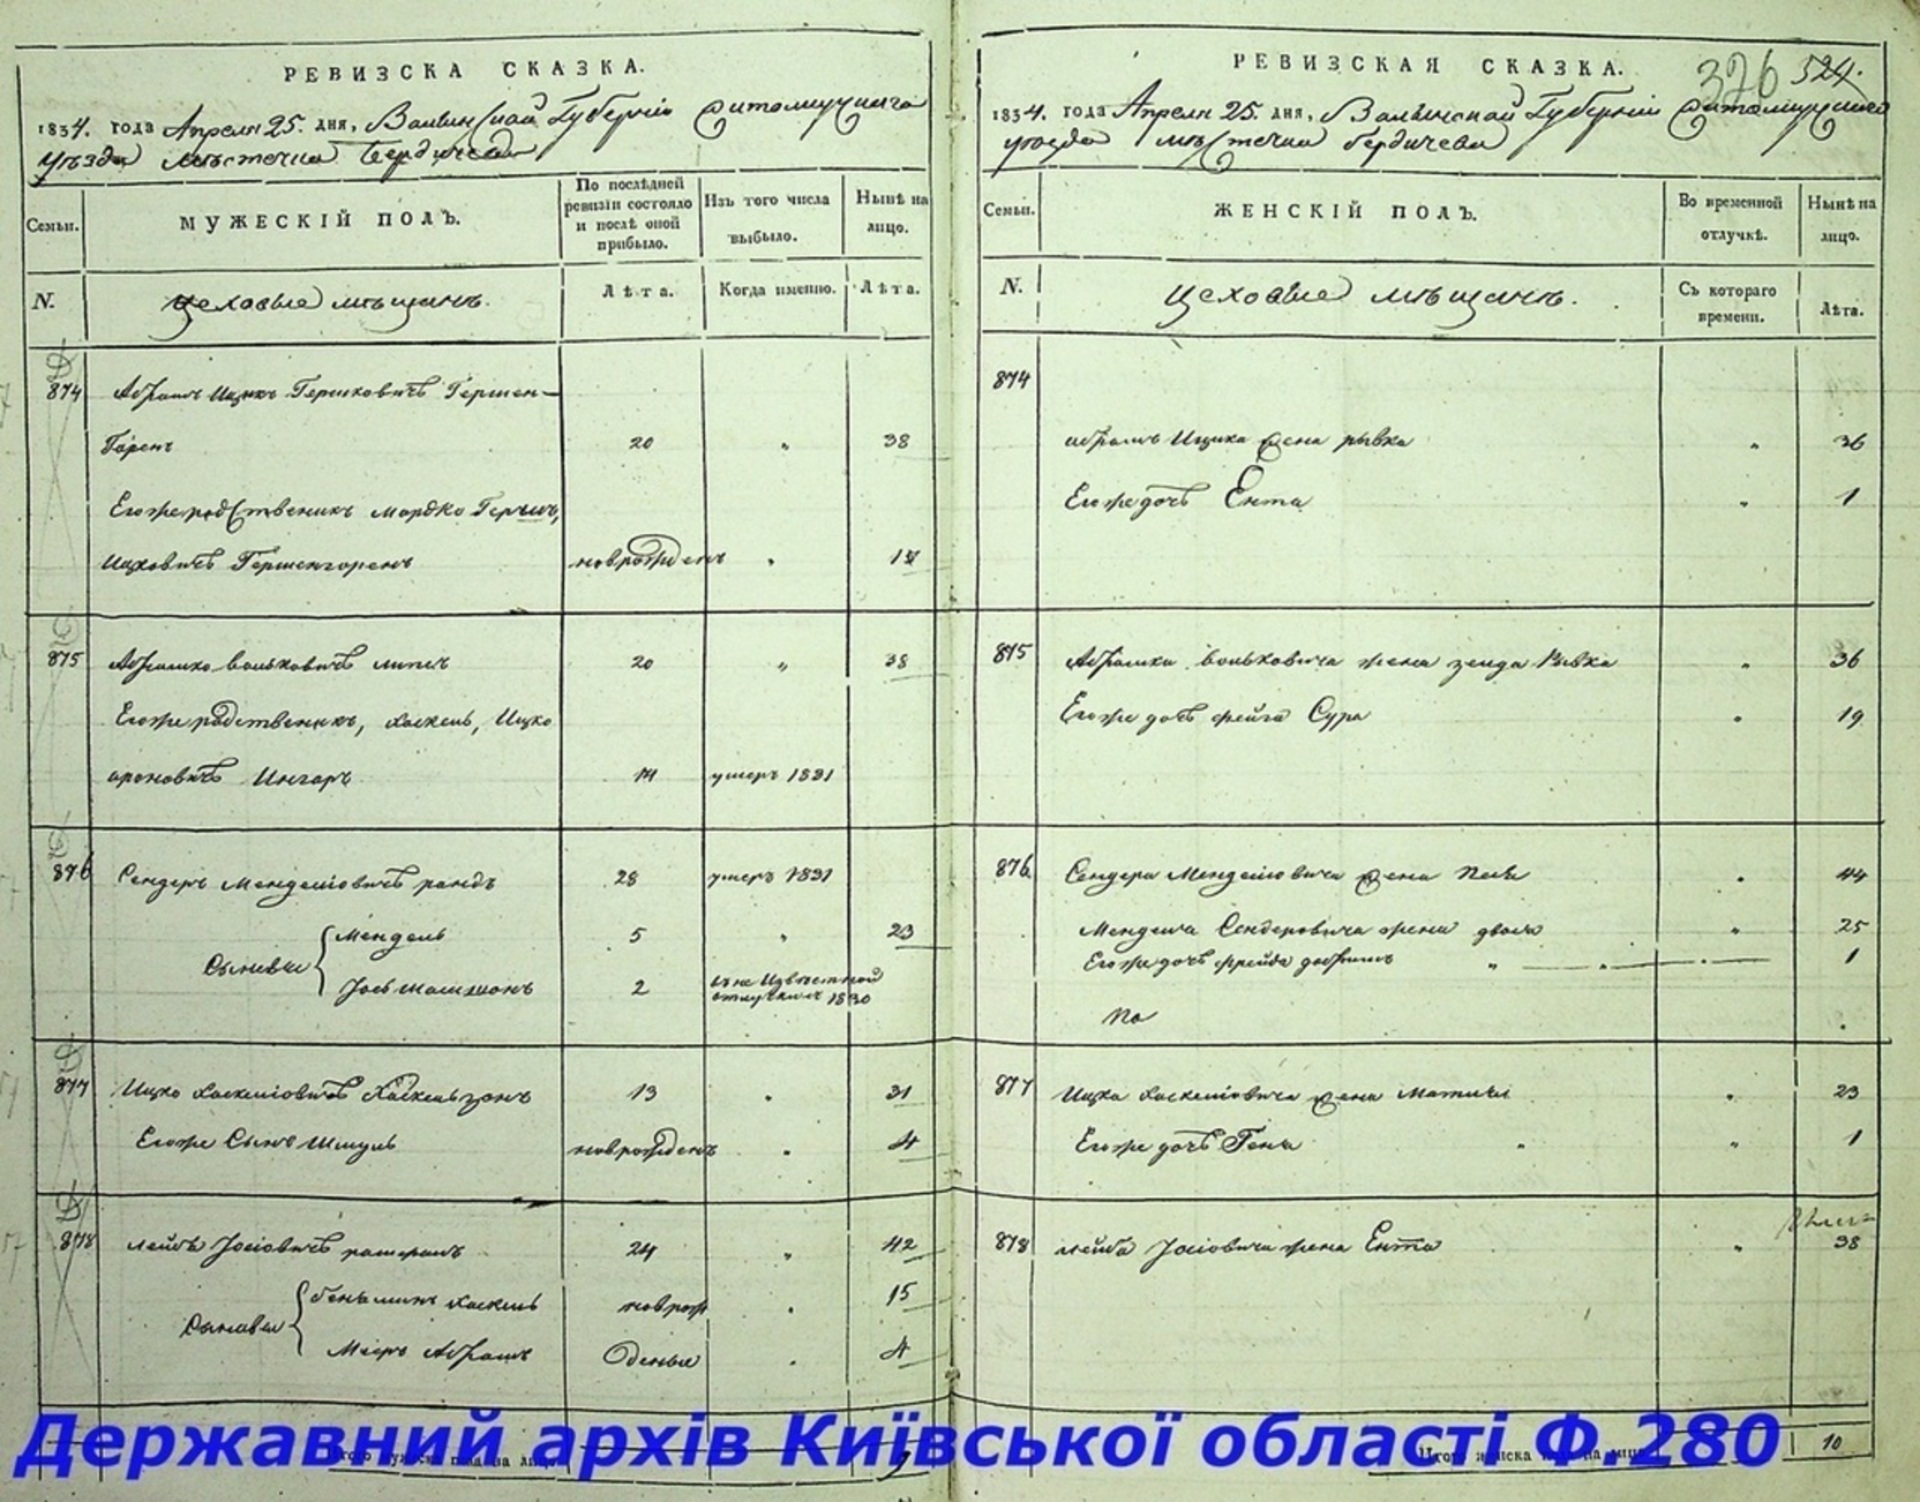 РЕВИЗСКА СКАЗКА.
1834. года Апреля 25. дня, Волынской Губерніи Житомирскаго
уѣзда мѣстечка Бердичева
Семьи.
МУЖЕСКІЙ ПОЛЪ.
По послѣдней ревизіи состояло и послѣ оной прибыло.
Изъ того числа выбыло.
Нынѣ на лицо.
N.
Цеховые мѣщанъ.
Лѣта.
Когда именно.
Лѣта.
874 Абрамъ Ицикъ Гершковичъ Гершен-
Горенъ 20 " 38
Егоже родственикъ Мордко Гершъ,
Ицковичъ Гершенгоренъ новорожденъ "
875 Абрамко Вольковичъ 20 " 38
Егоже родственикъ, Хаскель, Ицко
ароновичъ 14 умеръ 1831
876 Сендеръ Менделіовичъ 28 умеръ 1831
Сыновья { Мендель 5 " 23
Іось 2 въ неизвѣстной отлучкѣ съ 1830
877 Ицко Хаскеліовичъ Хаскельзонъ 13 " 31
Егоже Сынъ Шмуль новорожденъ " 4
878 Лейба Іосіовичъ 24 " 42
Сыновья { беньминъ Хаскель новорож " 15
Мееръ Абрамъ деные " 4
РЕВИЗСКАЯ СКАЗКА.
326 524.
1834. года Апреля 25. дня, Волынской Губерніи Житомирскаго
уѣзда мѣстечка Бердичева
Семьи.
ЖЕНСКІЙ ПОЛЪ.
Во временной отлучкѣ.
Нынѣ на лицо.
N.
Цеховые мѣщанъ.
Съ котораго времени.
Лѣта.
874
абрамъ Ицика жена рывка " 36
Егоже дочь Ента " 1
875 Абрамка Вольковича жена Рывка " 36
Егоже дочь фейга Сура " 19
876 Сендера Менделіовича жена " 44
Менделя Сендеровича жена двося " 25
Егоже дочь фрейда " 1
877 Ицка Хаскеліовича жена " 23
Егоже дочь Геня " 1
878 лейба Іосіовича жена Ента " 38
Итого мужеска пола на лицо 9
Итого женска пола на лицо 10
Державний архів Київської області Ф.280